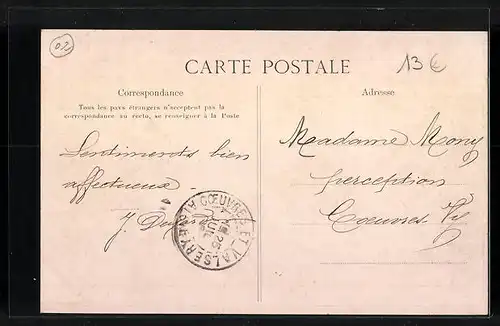 02
13 €
CARTE POSTALE
Correspondance
Adresse
Tous les pays étrangers n'acceptent pas la
correspondance au recto, se renseigner à la Poste
Sentiments bien
affectueux.
J.
Madame Mony
perception
Coeuvres
CŒUVRES-ET-VALSERY
25